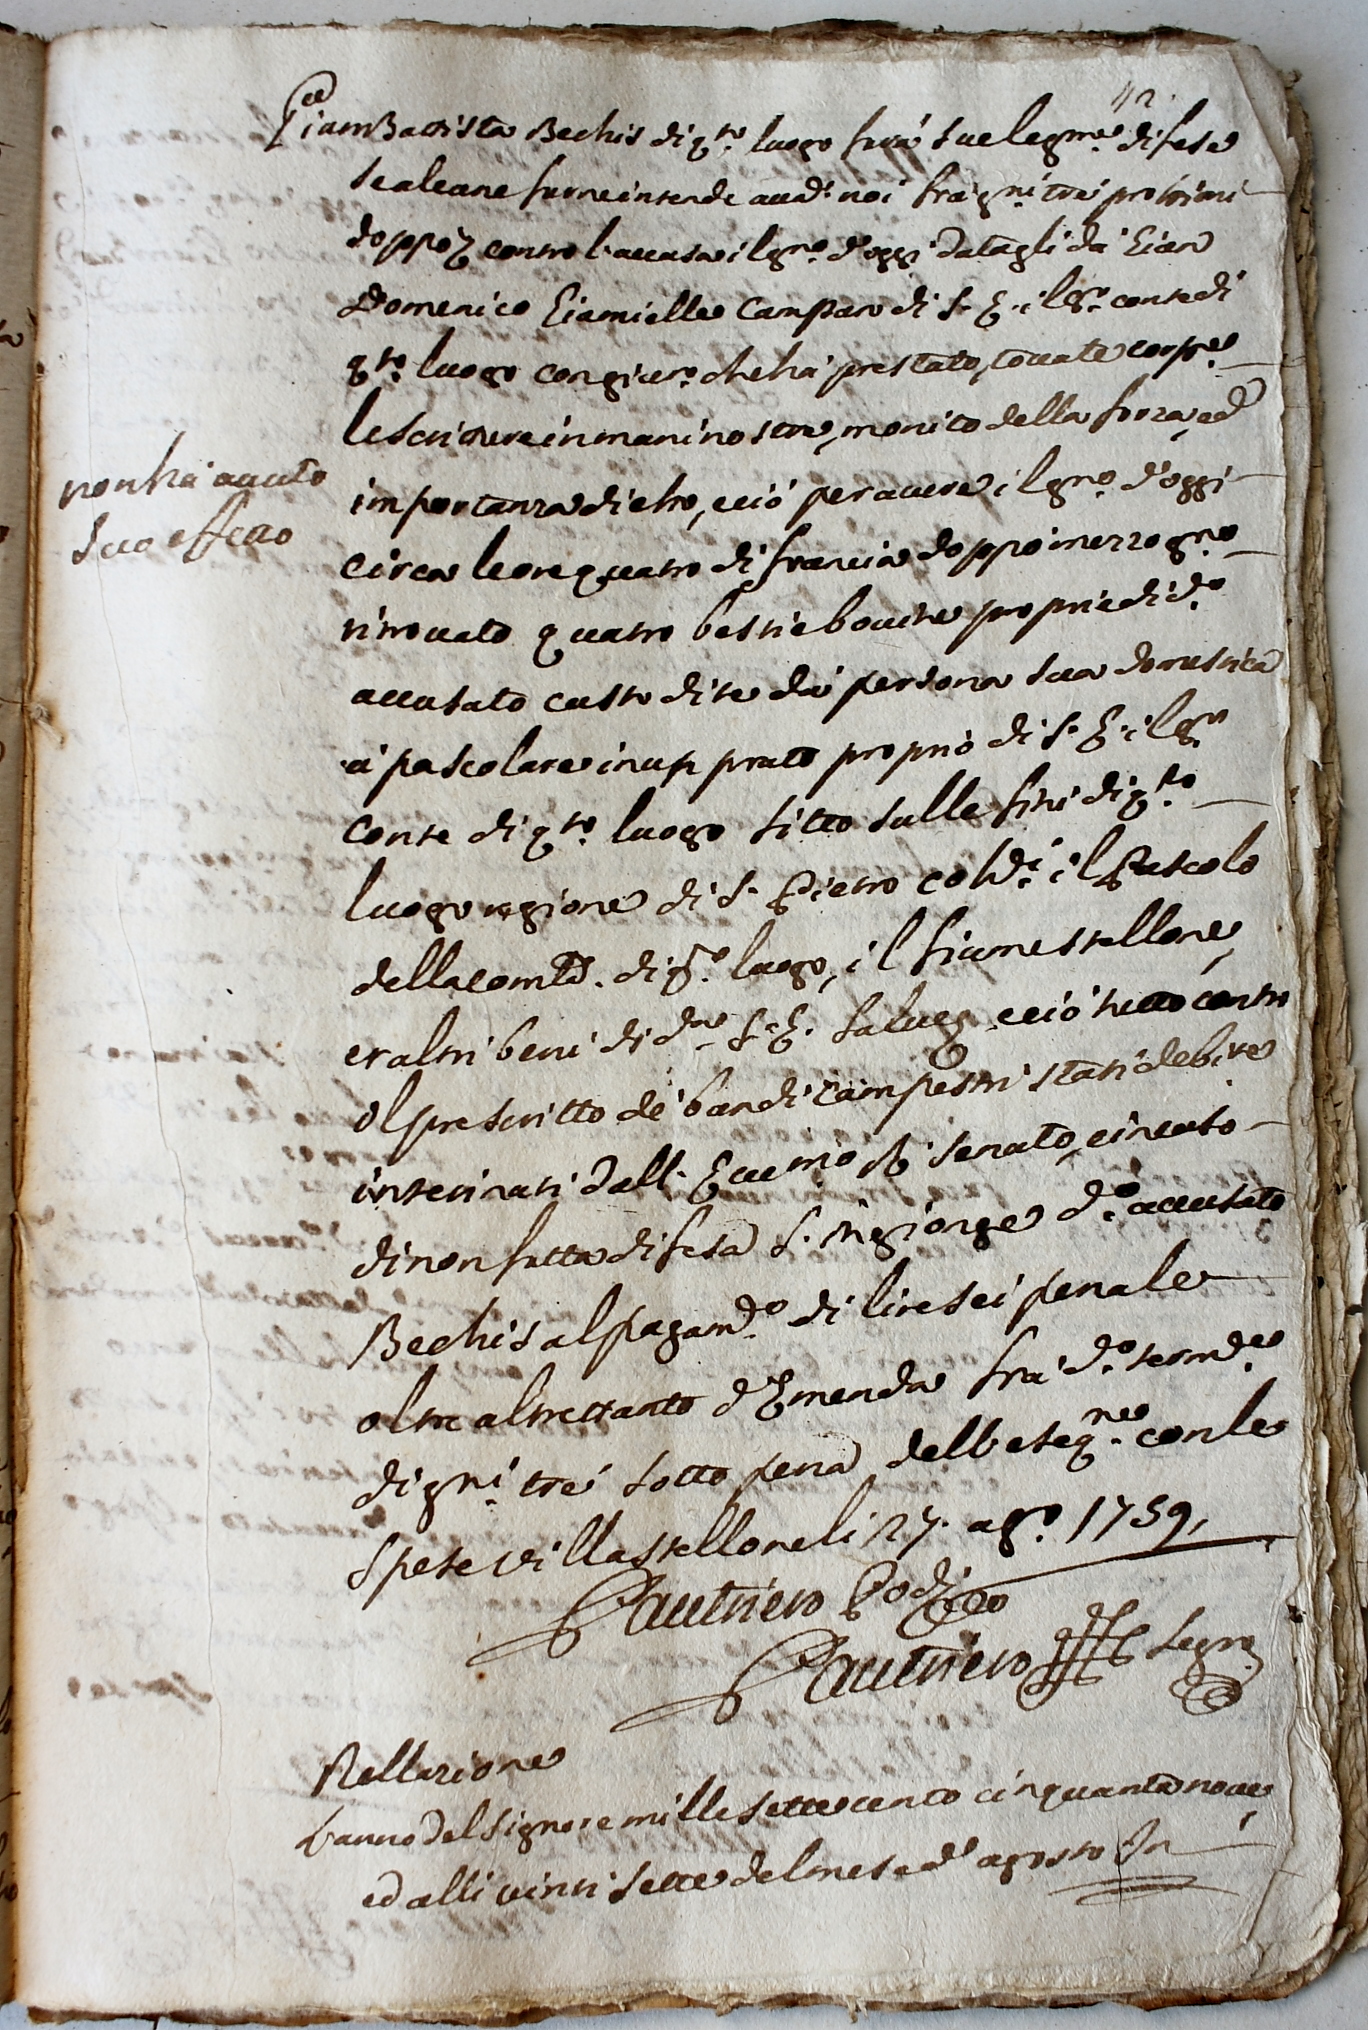 42
GiamBattista Bechis di q.to luogo farà sue legme difese
se alcane farne intende avad.i noi fra gni trè prossimi
doppoi contro l'accusa il gno d'oggi datagli dà Gian
Domenico Giamielle Camparo di S. E. il Sr. conte di
q.to luogo con giur.o che hà prestato, toccate corpe
le scritture in mani nostre, monito della forza, ed
importanza di esso, e ciò per avere il gno d'oggi
circa le ore quatro di francia doppo mezzo gno
ritrovato quatro bestie bovine proprie di d.o
accusato custodite dà persona sua domestica
à pascolare in un prato proprio di S. E. il Sr
Conte di q.to luogo sitto sulle fini di q.to
luogo regione di S. Pietro coh.ti il Pascolo
della comtà. di q.o luogo, il fiume stellone,
et altri beni di d.a S. E. salvo e ciò tutto contro
al prescritto de bandi campestri stati debite
interinati dall. Eccmo R. Senato, e in caso
di non fatta difesa S. ingionge d.o accusato
Bechis al pagam.to di lire sei penale
oltre altrettanto d'Emenda frà d.o termde
di gni trè sotto pena dell'eseqne con le
spese Villastellone li 27. ag.o 1759,
Gautriero Podà
Gautriero Segro
non hà avuto
suo effetto
Rellazione
L'anno del Signore mille settecento cinquanta nove,
ed alli vinti sette del mese d' agosto In